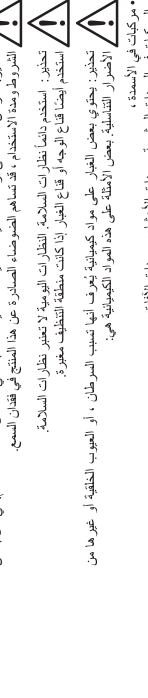 الشروط ومدة الاستخدام، قد تساهم الضوضاء الصادرة عن هذا المنتج في فقدان السمع.
تحذير: استخدم دائمًا نظارات السلامة. النظارات اليومية لا تعتبر نظارات السلامة.
استخدم أيضًا قناع الوجه أو قناع الغبار إذا كانت منطقة التنظيف مغبرة.
تحذير: يحتوي بعض الغبار على مواد كيميائية يُعرف أنها تسبب السرطان ، أو العيوب الخلقية أو غيرها من
الأضرار التناسلية. بعض الأمثلة على هذه المواد الكيميائية هي:
• مركبات في الأسمدة ،